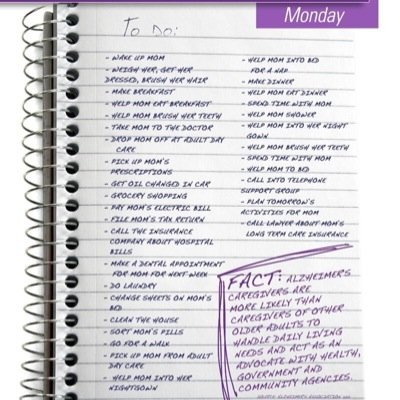 Monday
To Do:
- WAKE UP MOM
- WEIGH HER, GET HER
DRESSED, BRUSH HER HAIR
- MAKE BREAKFAST
- HELP MOM EAT BREAKFAST
- HELP MOM BRUSH HER TEETH
- TAKE MOM TO THE DOCTOR
- DROP MOM OFF AT ADULT DAY
CARE
- PICK UP MOM'S
PRESCRIPTIONS
- GET OIL CHANGED IN CAR
- GROCERY SHOPPING
- PAY MOM'S ELECTRIC BILL
- FILE MOM'S TAX RETURN
- CALL THE INSURANCE
COMPANY ABOUT HOSPITAL
BILLS
- MAKE A DENTAL APPOINTMENT
FOR MOM FOR NEXT WEEK
- DO LAUNDRY
- CHANGE SHEETS ON MOM'S
BED
- CLEAN THE HOUSE
- SORT MOM'S PILLS
- GO FOR A WALK
- PICK UP MOM FROM ADULT
DAY CARE
- HELP MOM INTO HER
NIGHTGOWN
- HELP MOM INTO BED
FOR A NAP
- MAKE DINNER
- HELP MOM EAT DINNER
- SPEND TIME WITH MOM
- HELP MOM SHOWER
- HELP MOM INTO HER NIGHT
GOWN
- HELP MOM BRUSH HER TEETH
- SPEND TIME WITH MOM
- HELP MOM TO BED
- CALL INTO TELEPHONE
SUPPORT GROUP
- PLAN TOMORROW'S
ACTIVITIES FOR MOM
- CALL LAWYER ABOUT MOM'S
LONG TERM CARE INSURANCE
FACT: ALZHEIMER'S
CAREGIVERS ARE
MORE LIKELY THAN
CAREGIVERS OF OTHER
OLDER ADULTS TO
HANDLE DAILY LIVING
NEEDS AND ACT AS AN
ADVOCATE WITH HEALTH,
GOVERNMENT AND
COMMUNITY AGENCIES.
SOURCE: ALZHEIMER'S ASSOCIATION